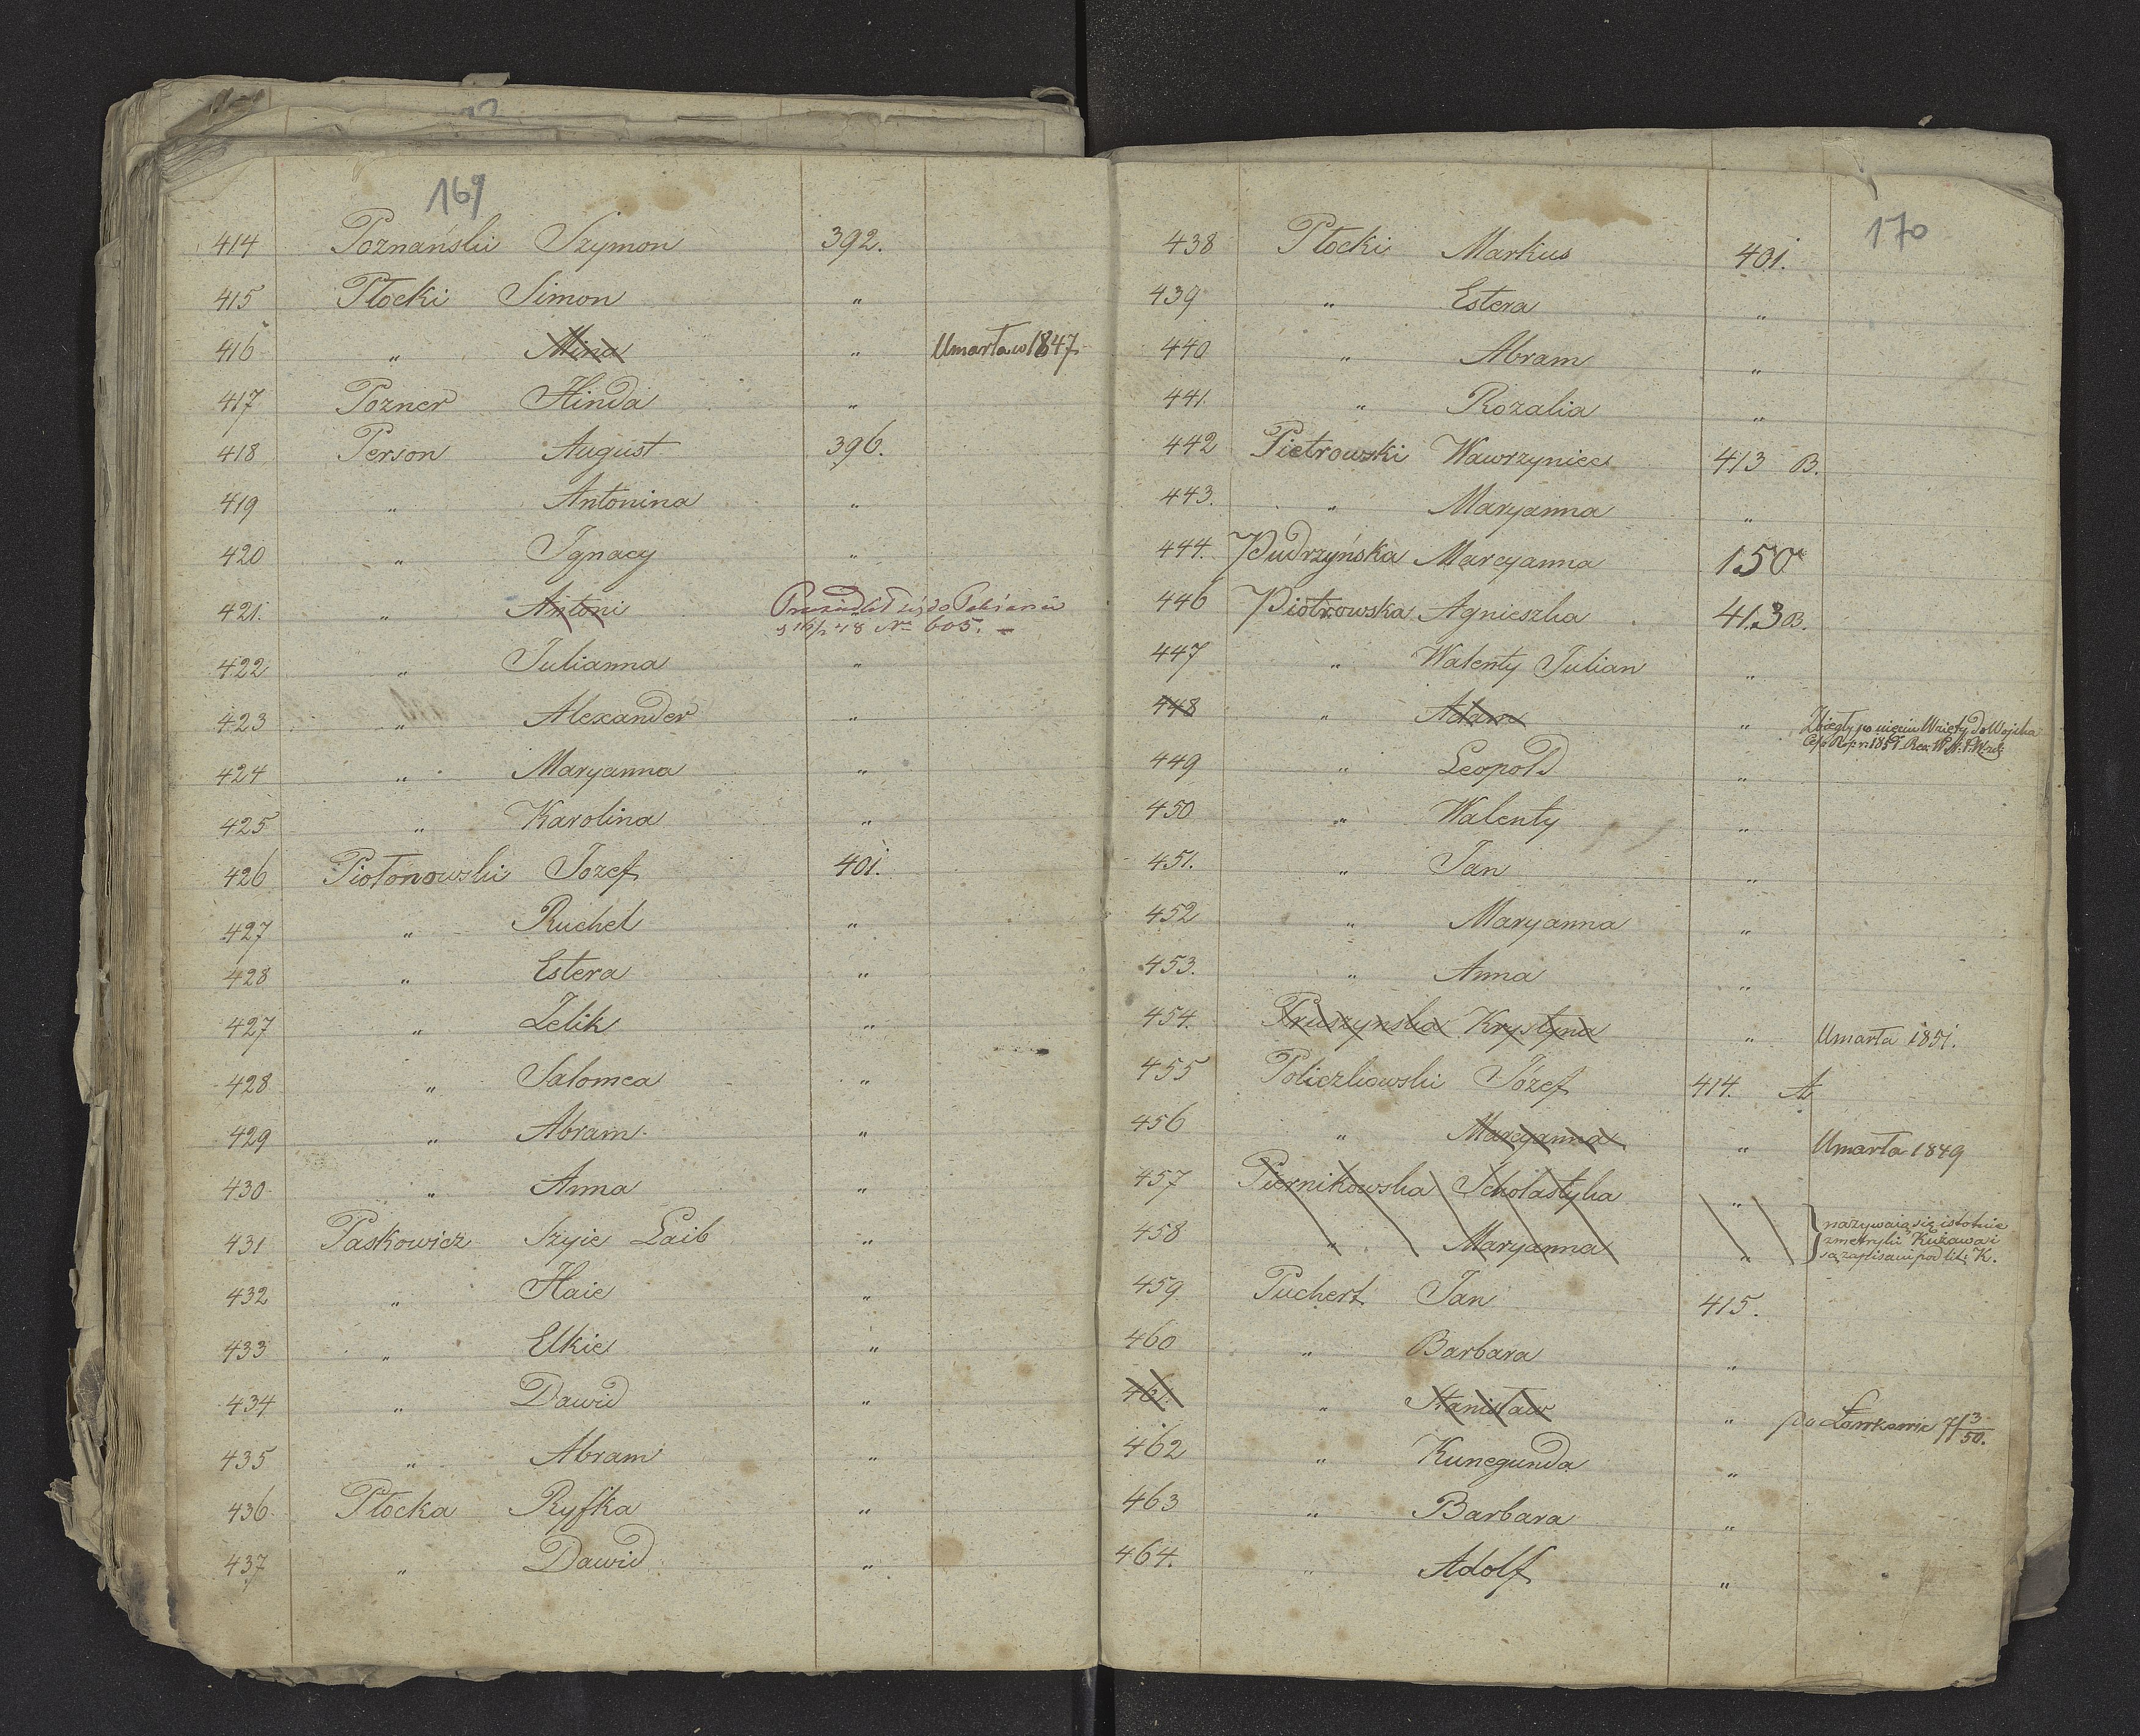 169
414 Poznański Szymon 392.
415 Płocki Simon "
416 " Mina " Umarła w 1847
417 Pozner Hinda "
418 Person August 396.
419 " Antonina "
420 " Ignacy "
421. " Antoni Przesiedlił się do Pabianic
48 No 605.
422 " Julianna "
423 " Alexander "
424 " Maryanna "
425 " Karolina "
426 Piotonowski Jozef 401.
427 " Ruchel "
428 " Estera "
427 " Zelik "
428 " Salomea "
429 " Abram "
430 " Anna "
431 Paskowicz Szyie Laib "
432 " Haie "
433 " Elkie "
434 " Dawid "
435 " Abram "
436 Płocka Ryfka "
437 " Dawid "
170
438 Płocki Markus 401.
439 " Estera "
440 " Abram "
441. " Rozalia "
442 Pietrowski Wawrzyniec 413 B.
443. " Maryanna "
444. Pudrzyńska Maryanna 150
446 Piotrowska Agnieszka 413 B.
447 " Walenty Julian "
448 " Adam " Zbiegły po wzięty do Wojska
1851
449 " Leopold "
450 " Walenty "
451. " Jan "
452 " Maryanna "
453. " Anna "
454. Pruszynska Krystyna " Umarła 1851.
455 Policzkowski Józef 414. A
456 " Maryanna " Umarła 1849
457 Piernikowska Scholastyka "
458 " Maryanna " nazywaią się istotnie
z metryki Kuzawa i
są zapisani pod lit: K.
459 Puchert Jan 415.
460 " Barbara "
461. " Stanisław " 3/50.
462 " Kunegunda "
463 " Barbara "
464. " Adolf "